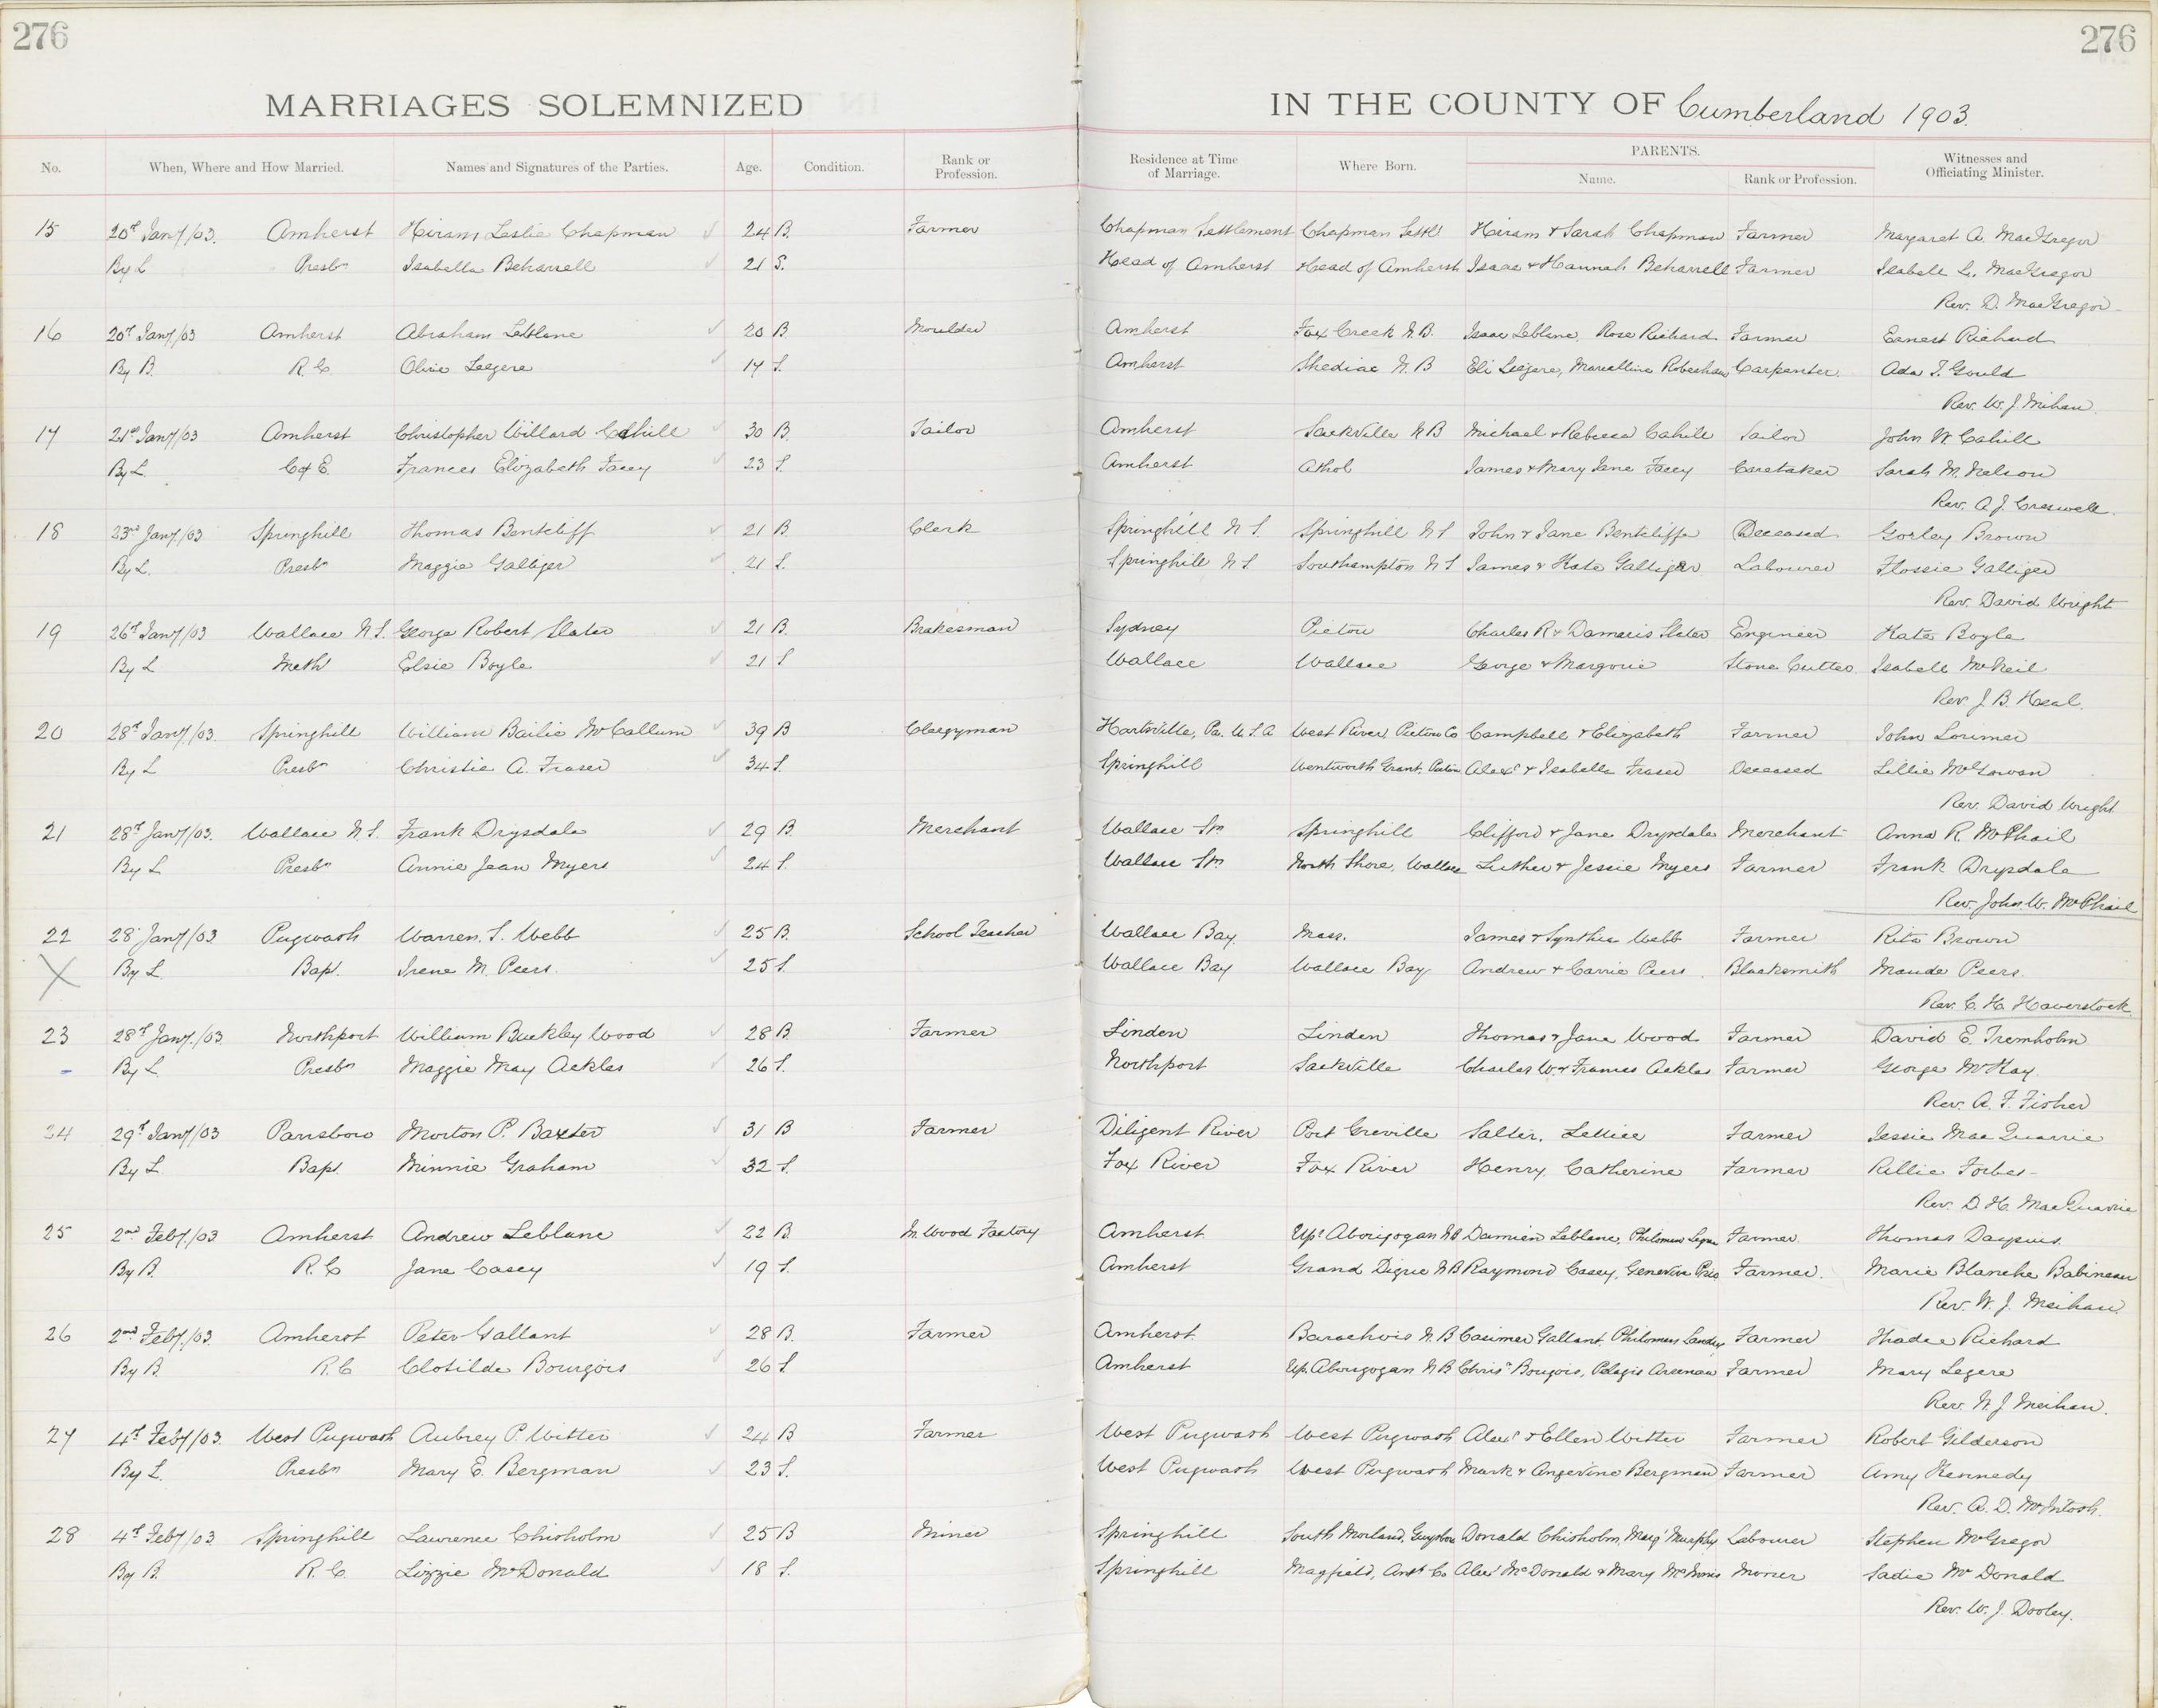 276
276
MARRIAGES SOLEMNIZED IN THE COUNTY OF Cumberland 1903.
No. When, Where and How Married. Names and Signatures of the Parties. Age. Condition. Rank or Profession. Residence at Time of Marriage. Where Born. PARENTS. Name. Rank or Profession. Witnesses and Officiating Minister.
15 20th Jany/03. Amherst Hiram Leslie Chapman 24 B. Farmer Chapman Settlement Chapman Settlt Hiram & Sarah Chapman Farmer Margaret A. MacGregor
By L Presbn Isabella Beharrell 21 S. Head of Amherst Head of Amherst Isaac & Hannah Beharrell Farmer Isabell L. MacGregor
Rev. D. MacGregor
16 20th Jany/03 Amherst Abraham Leblanc 20 B. Moulder Amherst Fox Creek N.B. Isaac Leblanc, Rose Richard Farmer Ernest Richard
By B. R.C. Olive Legere 17 S. Amherst Shediac N.B Eli Legere, Marcelline Carpenter Ada T. Gould
Rev. W. J. Mihan
17 21st Jany/03 Amherst Christopher Willard Cahill 30 B. Tailor Amherst Sackville N B Michael & Rebecca Cahill Tailor John W. Cahill
By L. C of E. Frances Elizabeth Facey 23 S. Amherst Athol James & Mary Jane Facey Caretaker Sarah M. Nelson
Rev. A. J. Creswell.
18 23rd Jany/03 Springhill Thomas Bentcliff 21 B. Clerk Springhill N S. Springhill N S John & Jane Bentcliffe Deceased Gorley Brown
By L. Presbn Maggie Galliger 21 S. Springhill N S. Southampton N S James & Kate Galliger Labourer Flossie Galliger
Rev. David Wright
19 26th Jany/03 Wallace N.S. George Robert Slater 21 B. Brakesman Sydney Pictou Charles R & Damaris Slater Engineer Kate Boyle
By L Meth Elsie Boyle 21 S Wallace Wallace George & Margorie Stone Cutter Isabell McNeil
Rev. J. B. Heal.
20 28th Jany/03. Springhill William Bailie McCallum 39 B Clergyman Hartsville, Pa. U.S.A West River, Pictou Co Campbell & Elizabeth Farmer John Lorimer
By L Presbn Christie A. Fraser 34 S. Springhill Wentworth Grant, Pictou Alexr & Isabella Fraser Deceased Lillie McGowan
Rev. David Wright.
21 28th Jany/03. Wallace N.S. Frank Drysdale 29 B. Merchant Wallace Stn Springhill Clifford & Jane Drysdale Merchant Anna R. McPhail
By L Presbn Annie Jean Myers 24 S. Wallace Stn North Shore, Wallace Luther & Jessie Myers Farmer Frank Drysdale
Rev. John W. McPhail
22 28 Jany/03 Pugwash Warren. S. Webb 25 B. School Teacher Wallace Bay. Mass. James & Synthia Webb Farmer Rita Brown
X By L Bapt. Irene M. Peers 25 S. Wallace Bay Wallace Bay Andrew & Carrie Peers Blacksmith Maude Peers.
Rev. C. H. Haverstock
23 28th Jany./03. Northport William Buckley Wood 28 B. Farmer Linden Linden Thomas & Jane Wood Farmer David E. Tremholm
By L. Presbn Maggie May Ackles 26 S. Northport Sackville Charles W. & Frances Ackles Farmer George McKay.
Rev. A. F. Fisher
24 29th Jany/03 Parrsboro Morton P. Baxter 31 B Farmer Diligent River Port Greville Salter, Lettice Farmer Jessie MacQuarrie
By L. Bapt. Minnie Graham 32 S. Fox River Fox River Henry, Catherine Farmer Rillie Forbes
Rev. D. H. MacQuarrie
25 2nd Feby./03 Amherst Andrew Leblanc 22 B. In Wood Factory Amherst Upr Aboujogan N B Damien Leblanc, Philomen Farmer Thomas
By B. R.C Jane Casey 19 S. Amherst Grand Digue N B Raymond Casey, Genevive Farmer. Marie Blanche Babineau
Rev. W. J. Meihan
26 2nd Feby./03. Amherst Peter Gallant 28 B. Farmer Amherst. Barachois N. B Casimer Gallant, Philomen Landry Farmer Thadie Richard
By B. R.C Clotilde Bourgois 26 S Amherst Up. Aboujogan N B Chrisr Bougois, Pelagie Farmer Mary Legere
Rev. W. J. Meihan.
27 4th Feby/03. West Pugwash Aubrey P. Witter 24 B Farmer West Pugwash West Pugwash Alexr & Ellen Witter Farmer Robert Gilderson
By L. Presbn Mary E. Bergman 23 S. West Pugwash West Pugwash Mark & Angevine Bergman Farmer Amy Kennedy
Rev. A. D. McIntosh.
28 4th Feby/03. Springhill Lawrence Chisholm 25 B Miner Springhill South Merland, Guysboro Donald Chisholm, Margt Murphy Labourer Stephen McGregor
By B. R.C. Lizzie McDonald 18 S. Springhill Mayfield, Antt Co Alexr McDonald & Mary McInnis Miner Sadie McDonald
Rev. W. J. Dooley.